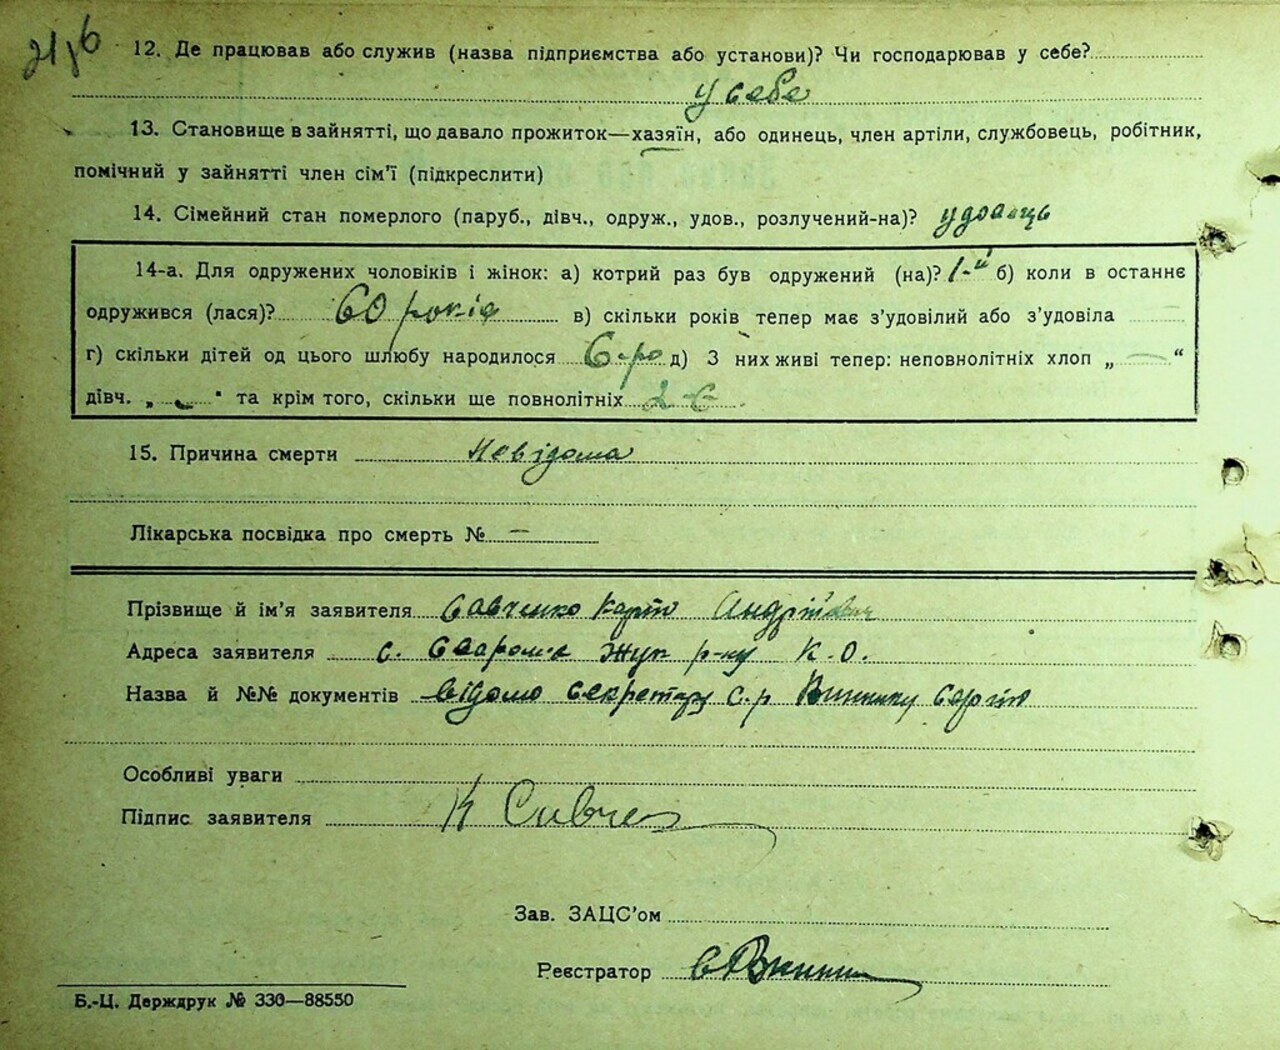 12. Де працював або служив (назва підприємства або установи)? Чи господарював у себе?
у себе
13. Становище в зайнятті, що давало прожиток—хазяїн, або одинець, член артіли, службовець, робітник,
помічний у зайнятті член сім'ї (підкреслити)
14. Сімейний стан померлого (паруб., дівч., одруж., удов., розлучений-на)? удовець
14-а. Для одружених чоловіків і жінок: а) котрий раз був одружений (на)? 1-й б) коли в останнє
одружився (лася)? 60 років в) скільки років тепер має з'удовілий або з'удовіла
г) скільки дітей од цього шлюбу народилося 6-ро д) З них живі тепер: неповнолітніх хлоп „ — “
дівч. „ — " та крім того, скільки ще повнолітніх 2-є
15. Причина смерти невідома
Лікарська посвідка про смерть № —
Прізвище й ім'я заявителя Савченко Андрійович
Адреса заявителя с. Сваром'є р-ну К. О.
Назва й №№ документів відомо секретару с.р Виннику Сергію
Особливі уваги
Підпис заявителя К Савчен
Зав. ЗАЦС'ом
Реєстратор
Б.-Ц. Держдрук № 330—88550